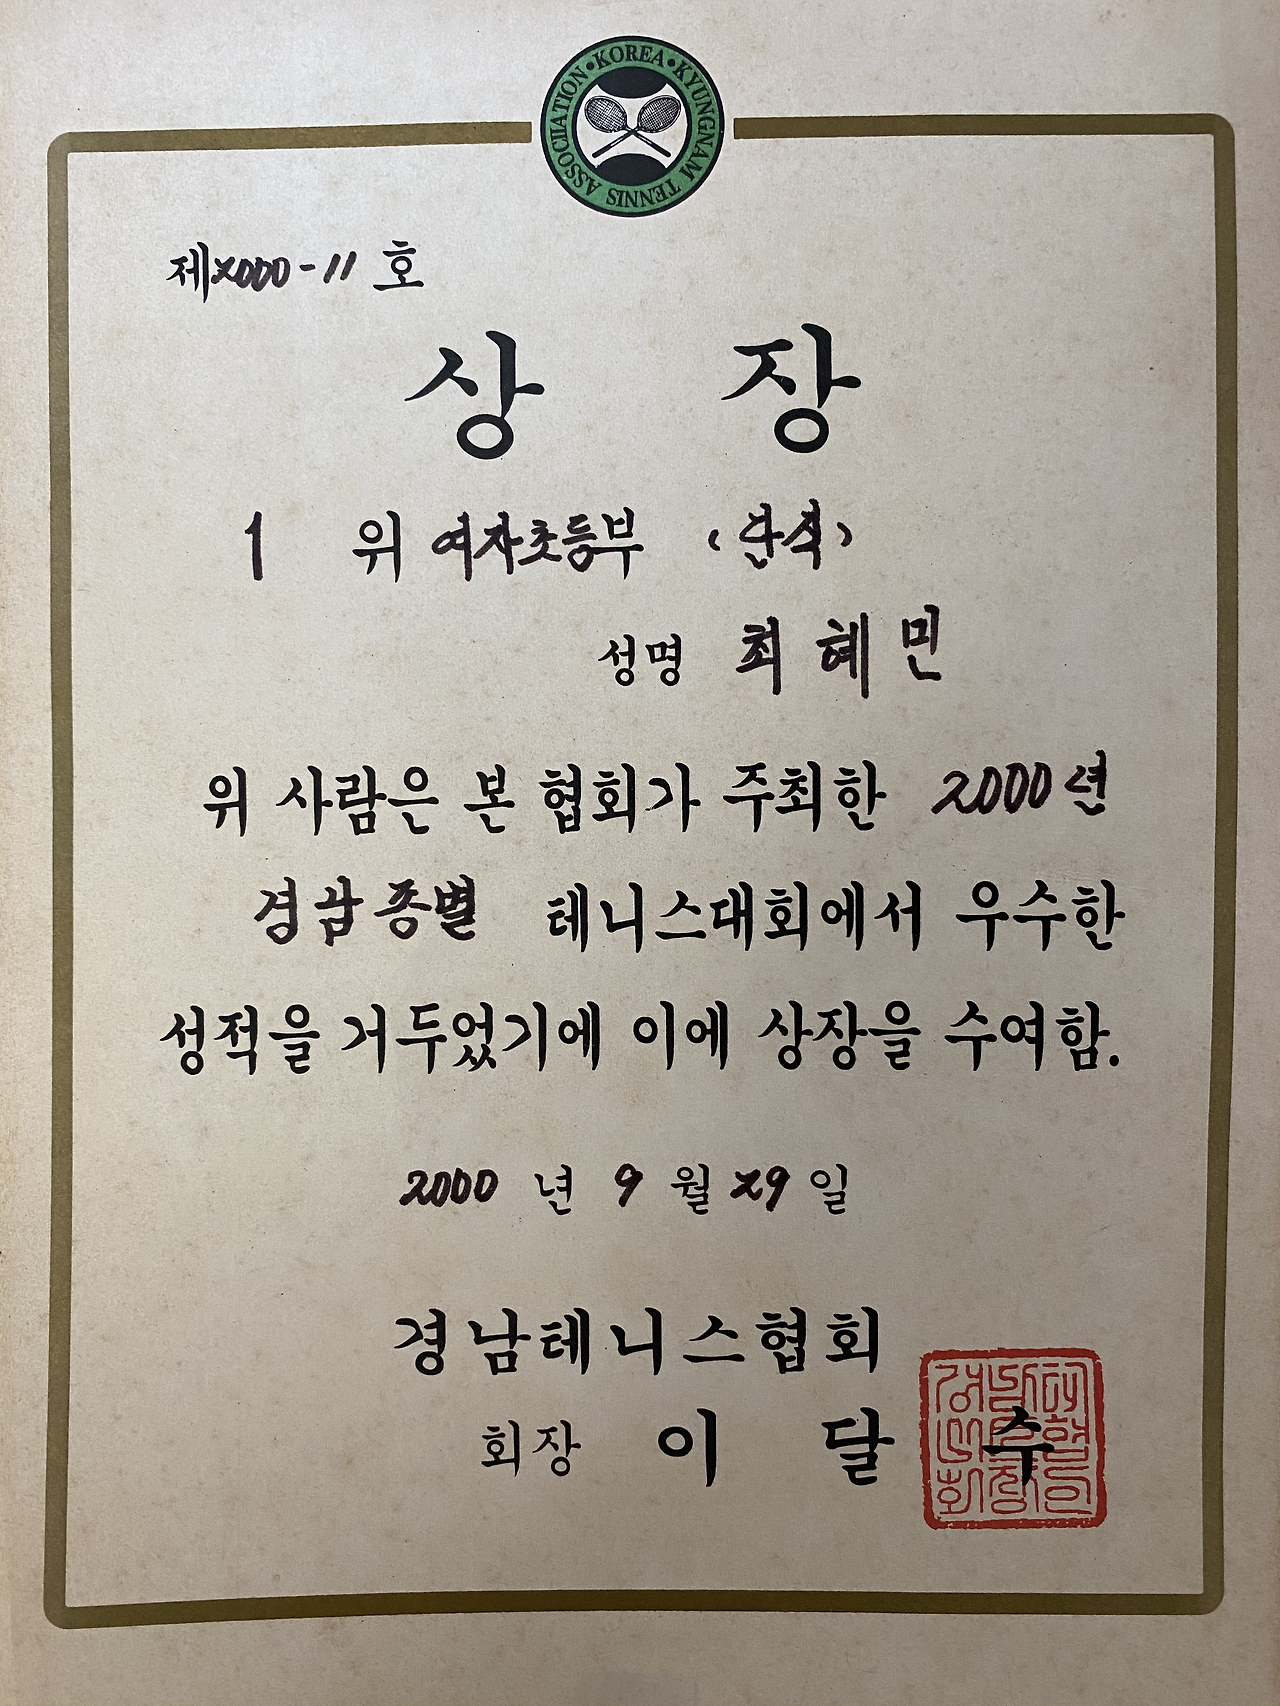 KOREA • KYUNGNAM TENNIS ASSOCIATION •
제2000-11 호
상 장
1 위 여자초등부 (단식)
성명 최 혜 민
위 사람은 본 협회가 주최한 2000년
경남종별 테니스대회에서 우수한
성적을 거두었기에 이에 상장을 수여함.
2000 년 9 월 29 일
경남테니스협회
회장 이 달 수